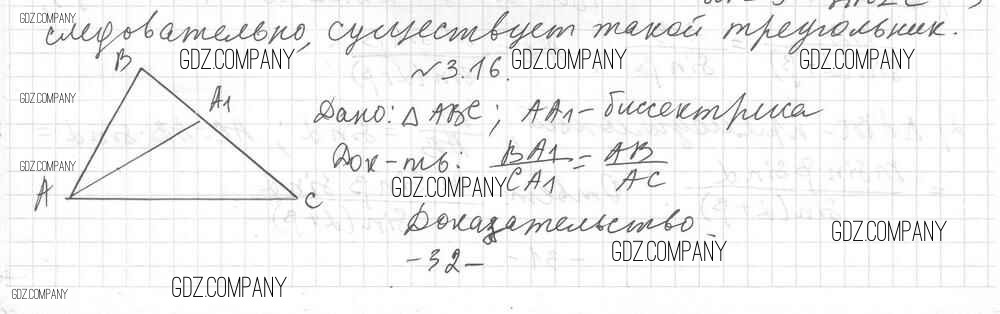 GDZ.COMPANY
следовательно, существует такой треугольник.
GDZ.COMPANY GDZ.COMPANY GDZ.COMPANY
№3.16.
B
GDZ.COMPANY
A1
Дано: △ABC; AA1 - биссектриса
Док-ть: BA1/CA1 = AB/AC
GDZ.COMPANY
GDZ.COMPANY
A C
Доказательство
GDZ.COMPANY
GDZ.COMPANY
-32-
GDZ.COMPANY
GDZ.COMPANY